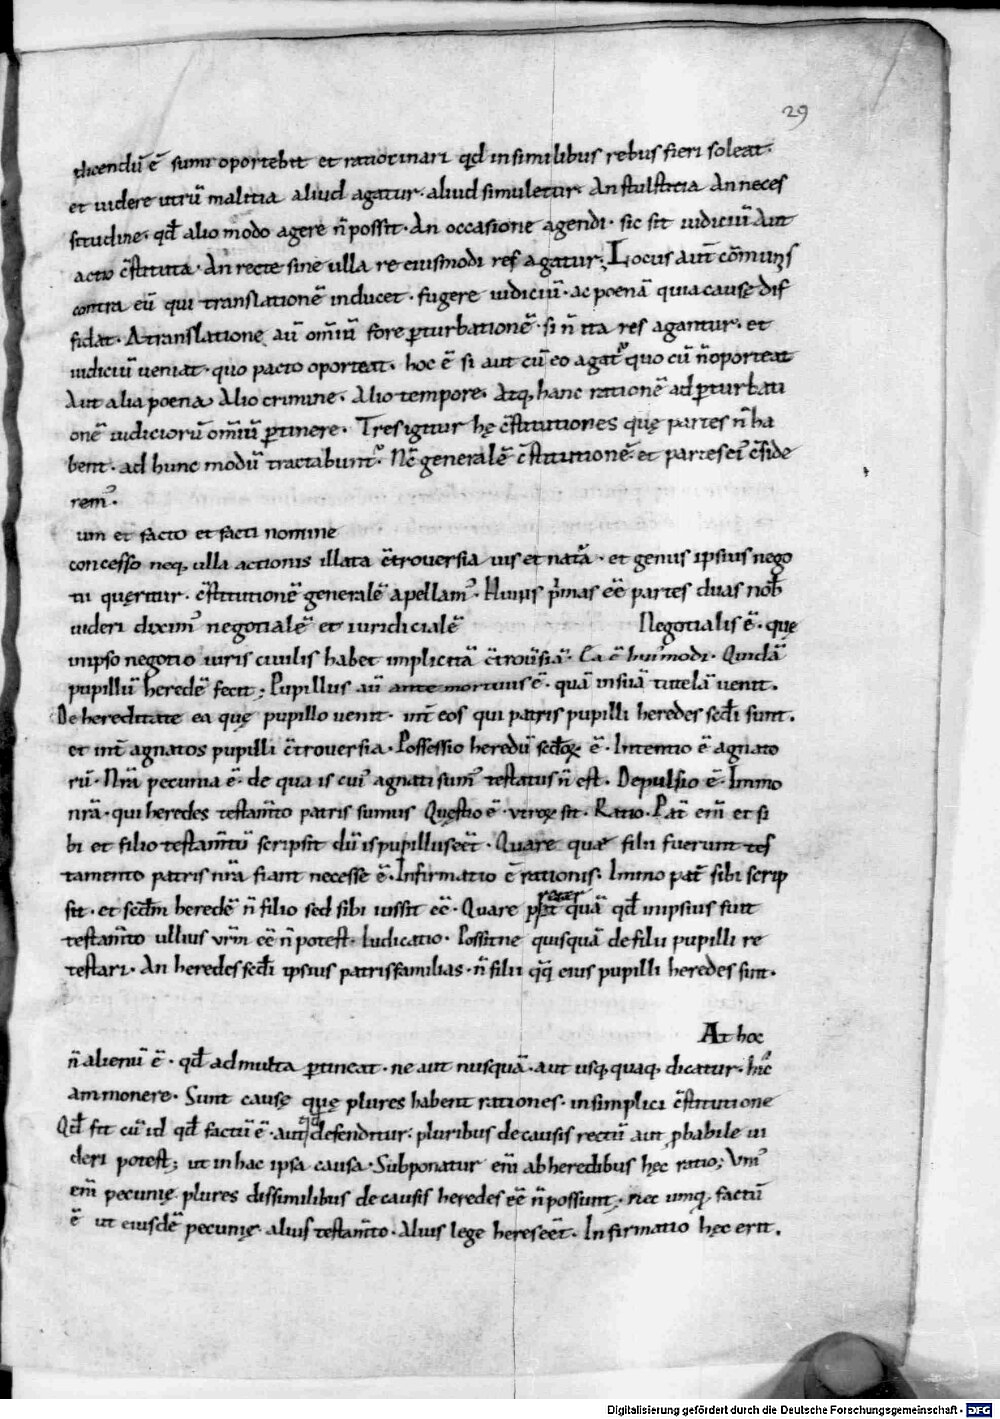 29
dicendū ē sumi oportebit et ratiocinari qd insimilibus rebus fieri soleat.
et uidere utrū malitia aliud agatur. aliud simuletur. An stulticia An neces
situdine. qđ alio modo agere n̄ possit. An occasione agendi. sic sit iudiciū Aut
actio c̄stituta. An recte sine ulla re eiusmodi res agatur; Locus aut̄ cōmunis
contra eū qui translationē inducet. fugere iudiciū. ac poenā quia causę dif
fidat. A translatione aū om̄iū fore pturbationē. si n̄ ita res agantur. et
iudiciū ueniat. quo pacto oporteat. hoc ē si aut cū eo agat᷑ quo cū n̄ oporteat
Aut alia poena. Alio crimine. Alio tempore. Atq, hanc rationē ad pturbati
onē iudiciorū om̄iū ptinere. Tres igitur hę c̄stitutiones quę partes n̄ ha
bent. ad hunc modū tractabunt᷑. Nc̄ generalē c̄stitutionē. et partes ei᷒ c̄side
rem᷒.
um et facto et facti nomine
concesso neq, ulla actionis illata c̄trouersia uis et nat᷑a. et genus ipsius nego
tii quęritur. c̄stitutionē generalē apellam᷒. Huius p̄mas eē partes duas nob̄
uideri dixim᷒ negotialē et iuridicialē Negotialis ē. quę
inipso negotio iuris ciuilis habet implicitā c̄trou̅siā. Ea ē hui᷒modi. Quidā
pupillū heredē fecit; Pupillus aū ante mortuus ē. quā insuā tutelā uenit.
De hereditate ea quę pupillo uenit. int̄ eos qui patris pupilli heredes secđi sunt.
et int̄ agnatos pupilli c̄trouersia. Possessio heredū secđoꝝ ē. Intentio ē agnato
rū. Nr̄a pecunia ē. de qua is cui᷒ agnati sum᷒ testatus n̄ est. Depulsio ē. Immo
nr̄a. qui heredes testam̄to patris sumus Quęstio ē. utroꝝ sit. Ratio. Pat̄ em̄ et si
bi et filio testam̄tū scripsit dū is pupillus eēt. Quare quae filii fuerunt tes
tamento patris nr̄a fiant necesse ē. Infirmatio ē rationis. Immo pat̄ sibi scrip
sit. et secđm heredē n̄ filio sed sibi iussit eē. Quare pst̄ quā qđ inipsius fuit
testam̄to ullius ur̄m eē n̄ potest. Iudicatio. Possitne quisquā de filii pupilli re
testari. An heredes secđi ipsius patrisfamilias. n̄ filii qq̄ eius pupilli heredes sint.
At hoc
n̄ alienū ē. qđ ad multa ptineat. ne aut nusquā. aut usq, quaq, dicatur. hic̄
ammonere. Sunt causę quę plures habent rationes. insimplici c̄stitutione
Qđ fit cū id qđ factū ē. aut qđ defenditur. pluribus de causis rectū aut ꝓbabile ui
deri potest; ut in hac ipsa causa. Subponatur em̄ ab heredibus hęc ratio; Uni᷒
em̄ pecunię plures dissimilibus de causis heredes eē n̄ possunt. nec umq, factū
ē ut eiusdē pecunię. alius testam̄to. Alius lege heres eēt. Infirmatio hęc erit.
Digitalisierung gefördert durch die Deutsche Forschungsgemeinschaft - DFG